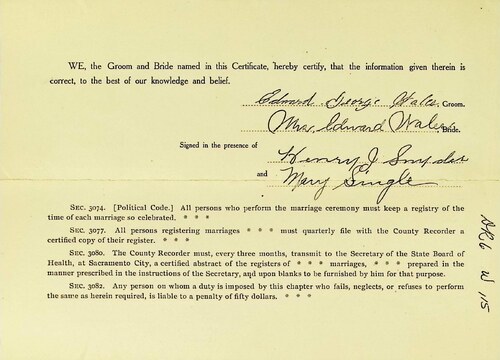 WE, the Groom and Bride named in this Certificate, hereby certify, that the information given therein is
correct, to the best of our knowledge and belief.
Edward George Wales, Groom.
Mrs. Edward Wales, Bride.
Signed in the presence of
Henry J Snyder
and Mary Single
SEC. 3074. [Political Code.] All persons who perform the marriage ceremony must keep a registry of the
time of each marriage so celebrated. * * *
SEC. 3077. All persons registering marriages * * * must quarterly file with the County Recorder a
certified copy of their register. * * *
SEC. 3080. The County Recorder must, every three months, transmit to the Secretary of the State Board of
Health, at Sacramento City, a certified abstract of the registers of * * * marriages, * * * prepared in the
manner prescribed in the instructions of the Secretary, and upon blanks to be furnished by him for that purpose.
SEC. 3082. Any person on whom a duty is imposed by this chapter who fails, neglects, or refuses to perform
the same as herein required, is liable to a penalty of fifty dollars. * * *
W 115